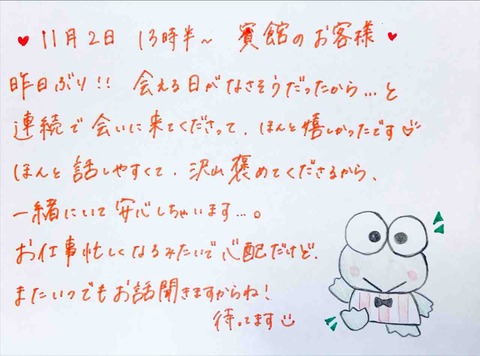 ♥ 11月2日 13時半~ 賓館のお客様 ♥
昨日ぶり!! 会える日がなさそうだったから…と
連続で会いに来てくださって、ほんと嬉しかったです
ほんと話しやすくて、沢山褒めてくださるから、
一緒にいて安心しちゃいます…。
お仕事忙しくなるみたいで心配だけど、
またいつでもお話聞きますからね!
待ってます